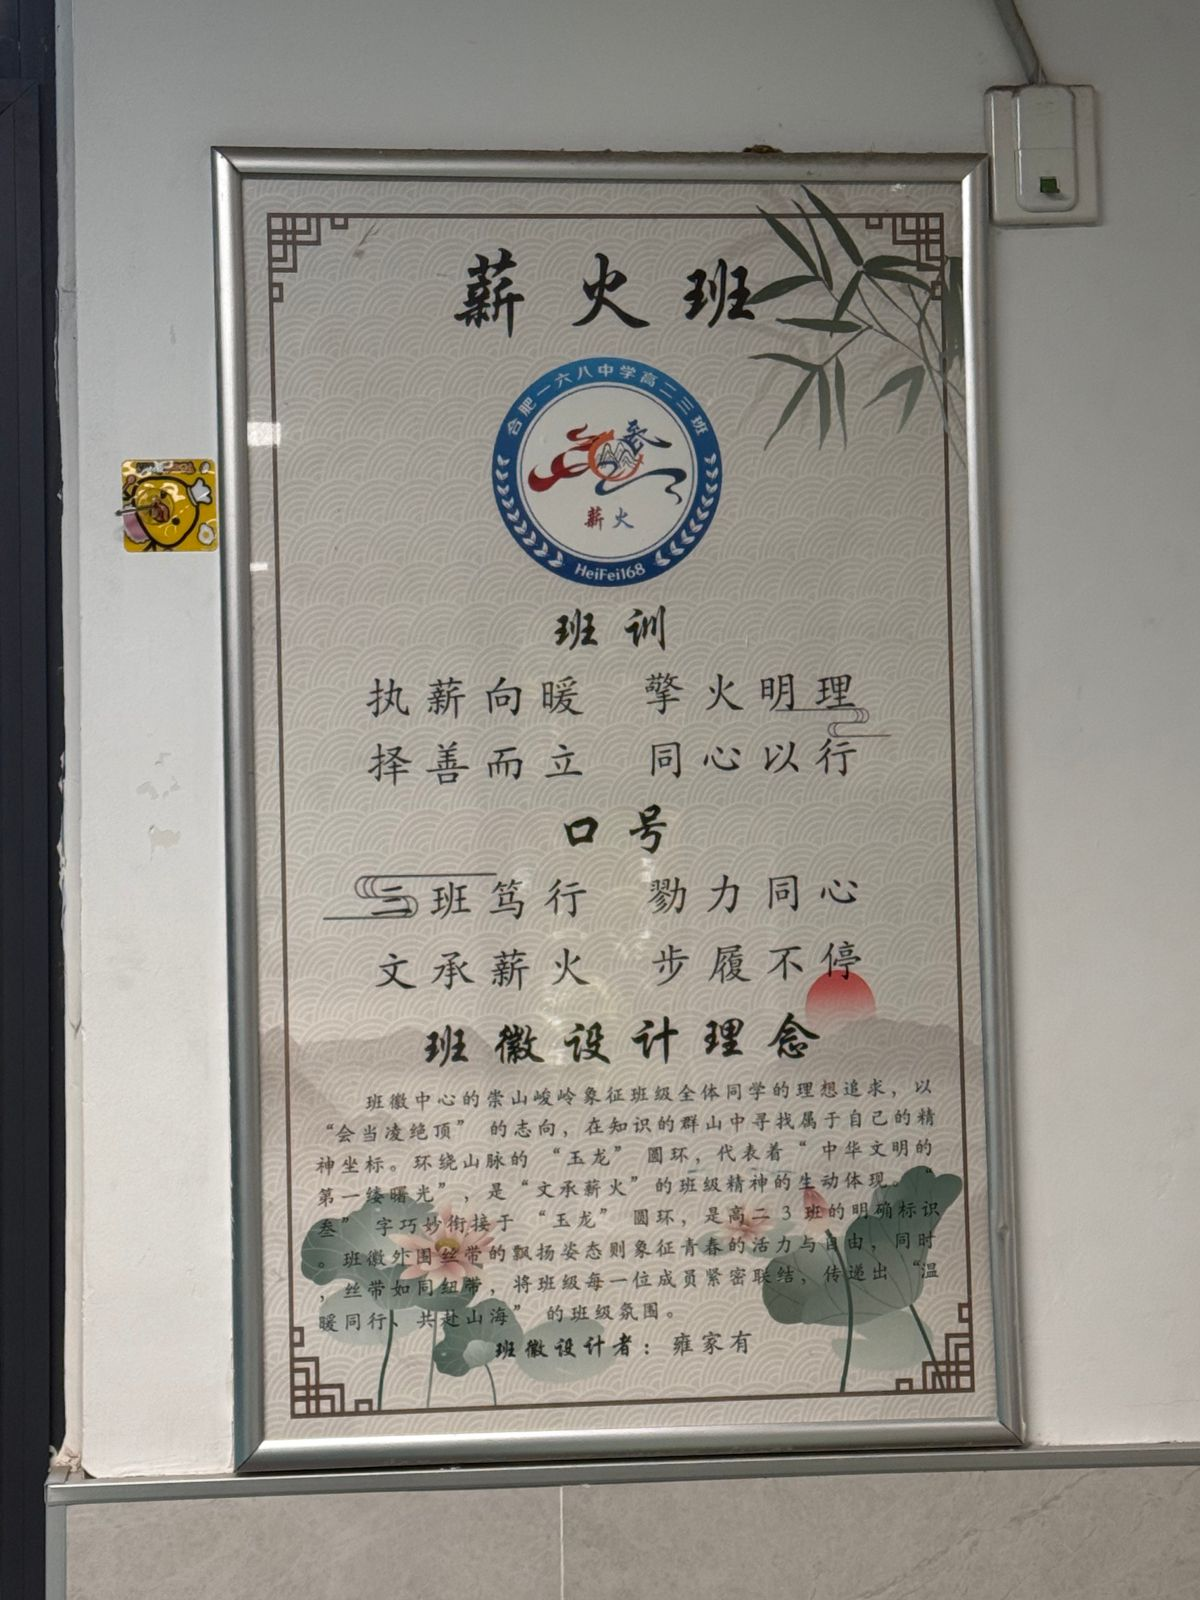 薪火班
合肥一六八中学高二三班
叁
薪火
HeiFei168
班训
执薪向暖 擎火明理
择善而立 同心以行
口号
三班笃行 勠力同心
文承薪火 步履不停
班徽设计理念
班徽中心的崇山峻岭象征班级全体同学的理想追求，以
“会当凌绝顶” 的志向，在知识的群山中寻找属于自己的精
神坐标。环绕山脉的 “玉龙” 圆环，代表着“ 中华文明的
第一缕曙光”，是“文承薪火”的班级精神的生动体现。 “
叁” 字巧妙衔接于 “玉龙” 圆环，是高二 3 班的明确标识
。班徽外围丝带的飘扬姿态则象征青春的活力与自由，同时
，丝带如同纽带，将班级每一位成员紧密联结，传递出 “温
暖同行、共赴山海” 的班级氛围。
班徽设计者：雍家有